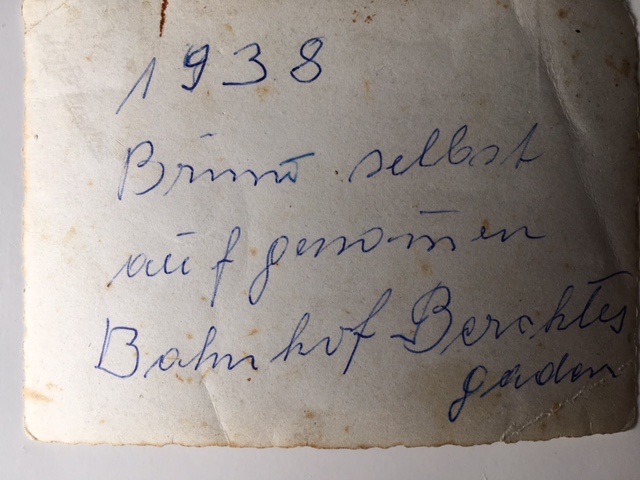 1938
Bruno selbst
aufgenom̅en
Bahnhof Berchtes
gaden